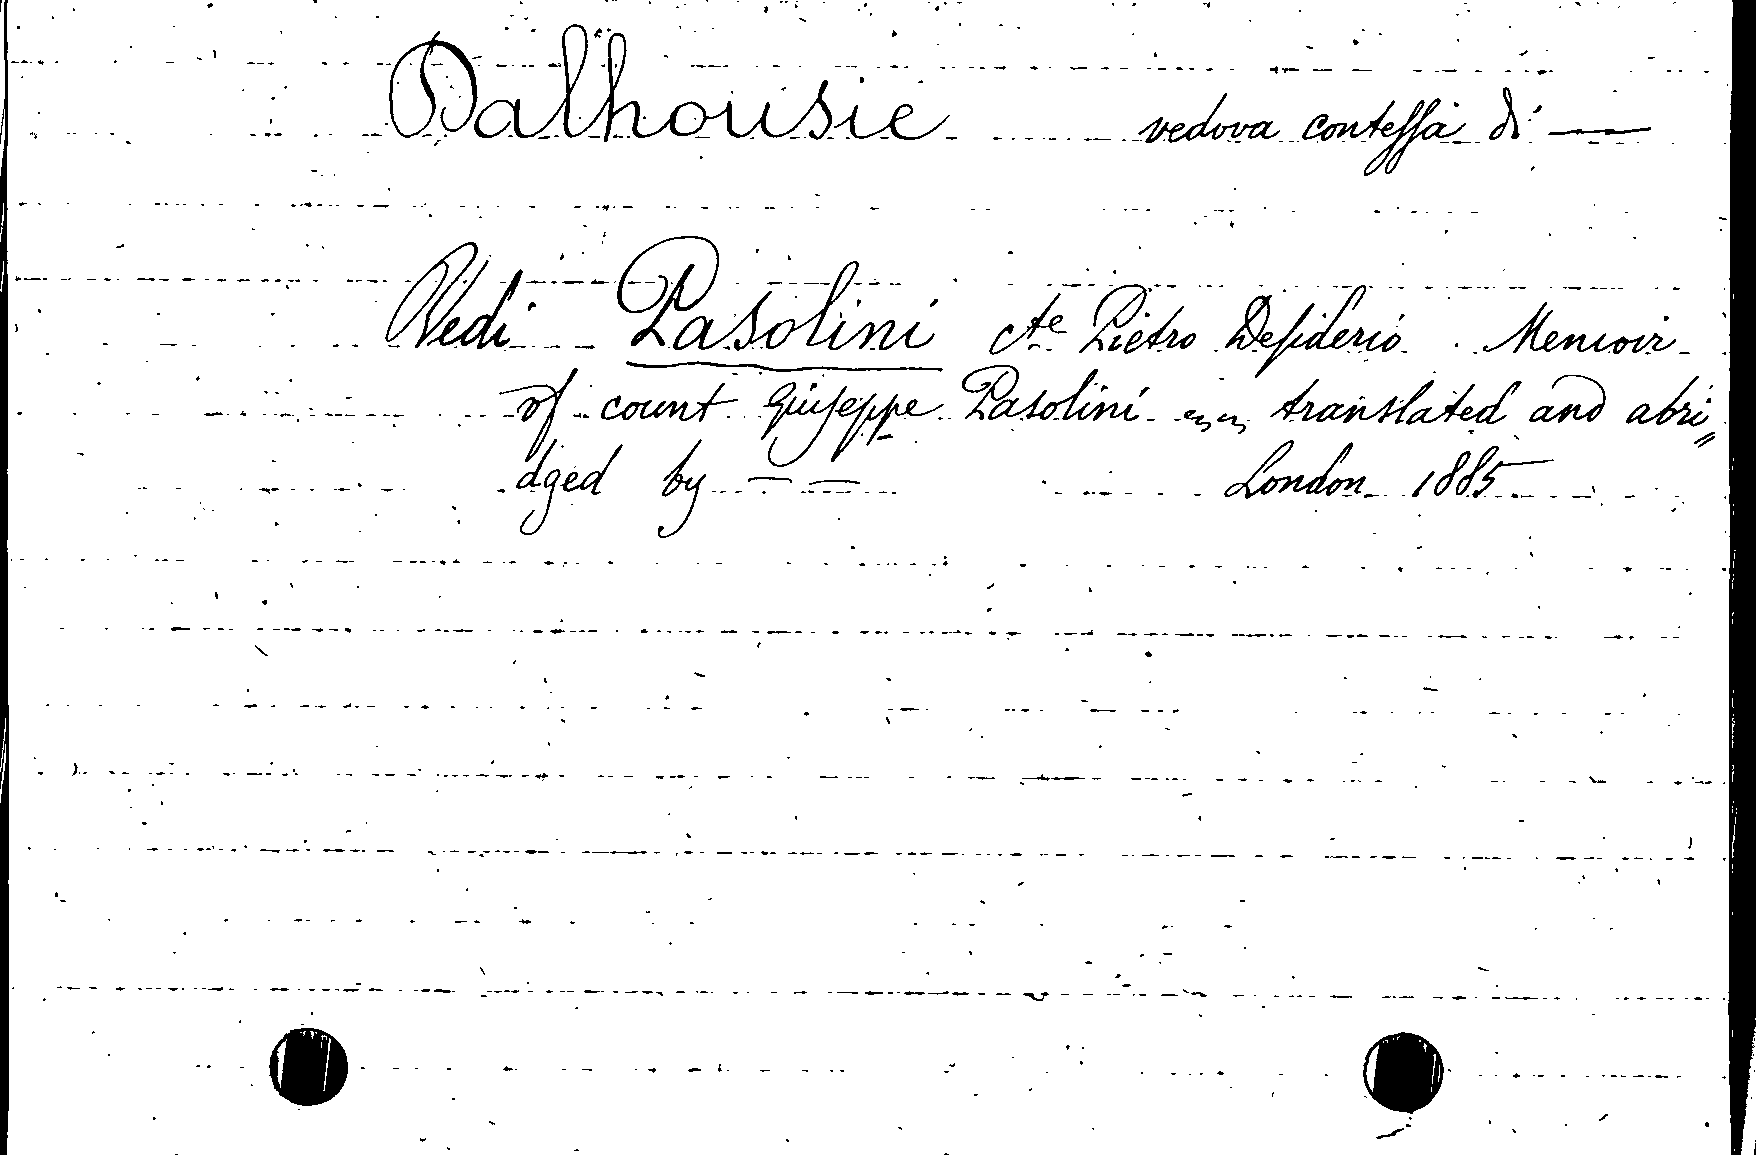 Dalhousie vedova contessa di —
Vedi Pasolini cte Pietro Desiderio. Memoir
of count Giuseppe Pasolini ~~ translated and abri„
dged by — — London 1885